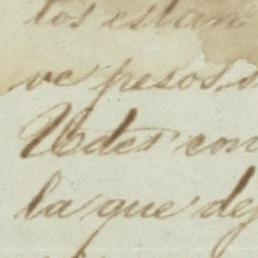 los estan
ve pesos
Udes con
la que de